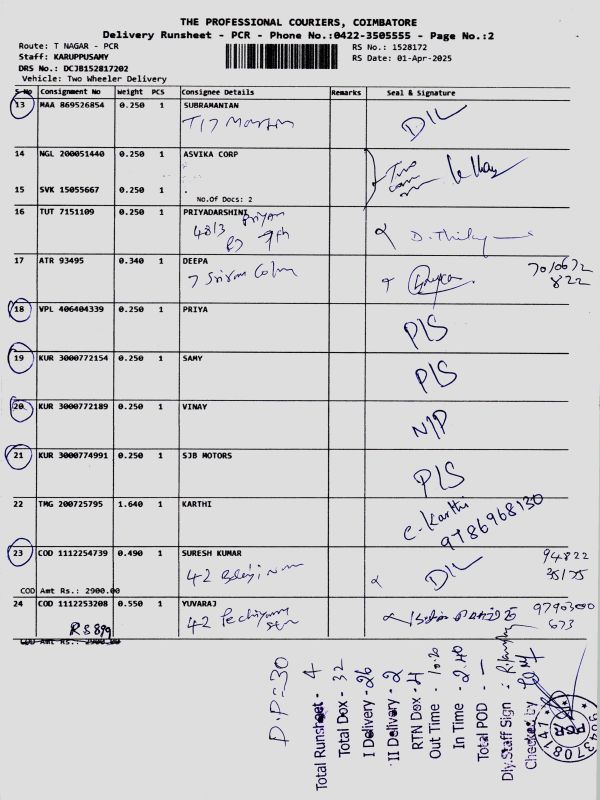 THE PROFESSIONAL COURIERS, COIMBATORE
Delivery Runsheet - PCR - Phone No.:0422-3505555 - Page No.:2
Route: T NAGAR - PCR
RS No.: 1528172
Staff: KARUPPUSAMY
RS Date: 01-Apr-2025
DRS No.: DCJB152817202
Vehicle: Two Wheeler Delivery
S No Consignment No Weight PCS Consignee Details Remarks Seal & Signature
13 MAA 869526854 0.250 1 SUBRAMANIAN
D/L
14 NGL 200051440 0.250 1 ASVIKA CORP
15 SVK 15055667 0.250 1 .
No.Of Docs: 2
16 TUT 7151109 0.250 1 PRIYADARSHINI
Priyam
48/3
17 ATR 93495 0.340 1 DEEPA
7 Sriram
7010672
822
18 VPL 406404339 0.250 1 PRIYA
P/S
19 KUR 3000772154 0.250 1 SAMY
P/S
20 KUR 3000772189 0.250 1 VINAY
N/P
21 KUR 3000774991 0.250 1 SJB MOTORS
P/S
22 TMG 200725795 1.640 1 KARTHI
C. Karthi
9786968130
23 COD 1112254739 0.490 1 SURESH KUMAR
42
D/L
94822
35175
COD Amt Rs.: 2900.00
24 COD 1112253208 0.550 1 YUVARAJ
42
97903000
673
RS 899
COD Amt Rs.: 2900.00
D.P=30
Total Runsheet - 4
Total Dox - 32
I Delivery - 26
II Delivery - 2
RTN Dox - 4
Out Time - 10.20
In Time - 2.40
Total POD - —
Dly.Staff Sign :
Checked by
PCR